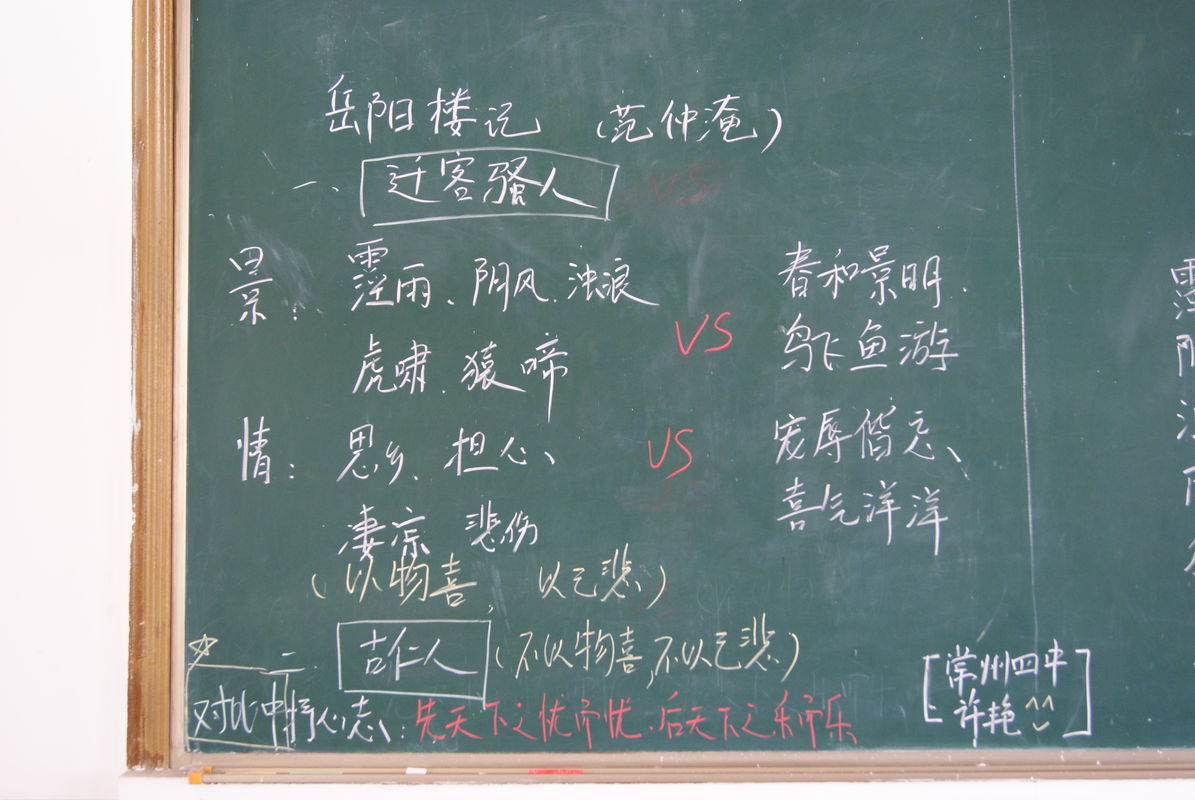 岳阳楼记 (范仲淹)
一、迁客骚人 VS
景: 霪雨、阴风、浊浪 VS 春和景明.
虎啸.猿啼 鸟飞鱼游
情: 思乡、担心、 VS 宠辱偕忘、
凄凉 悲伤 喜气洋洋
(以物喜, 以己悲)
☆ 二.古仁人(不以物喜,不以己悲)
对比中抒心志、:先天下之忧而忧.后天下之乐而乐
[常州四中
许艳^^]